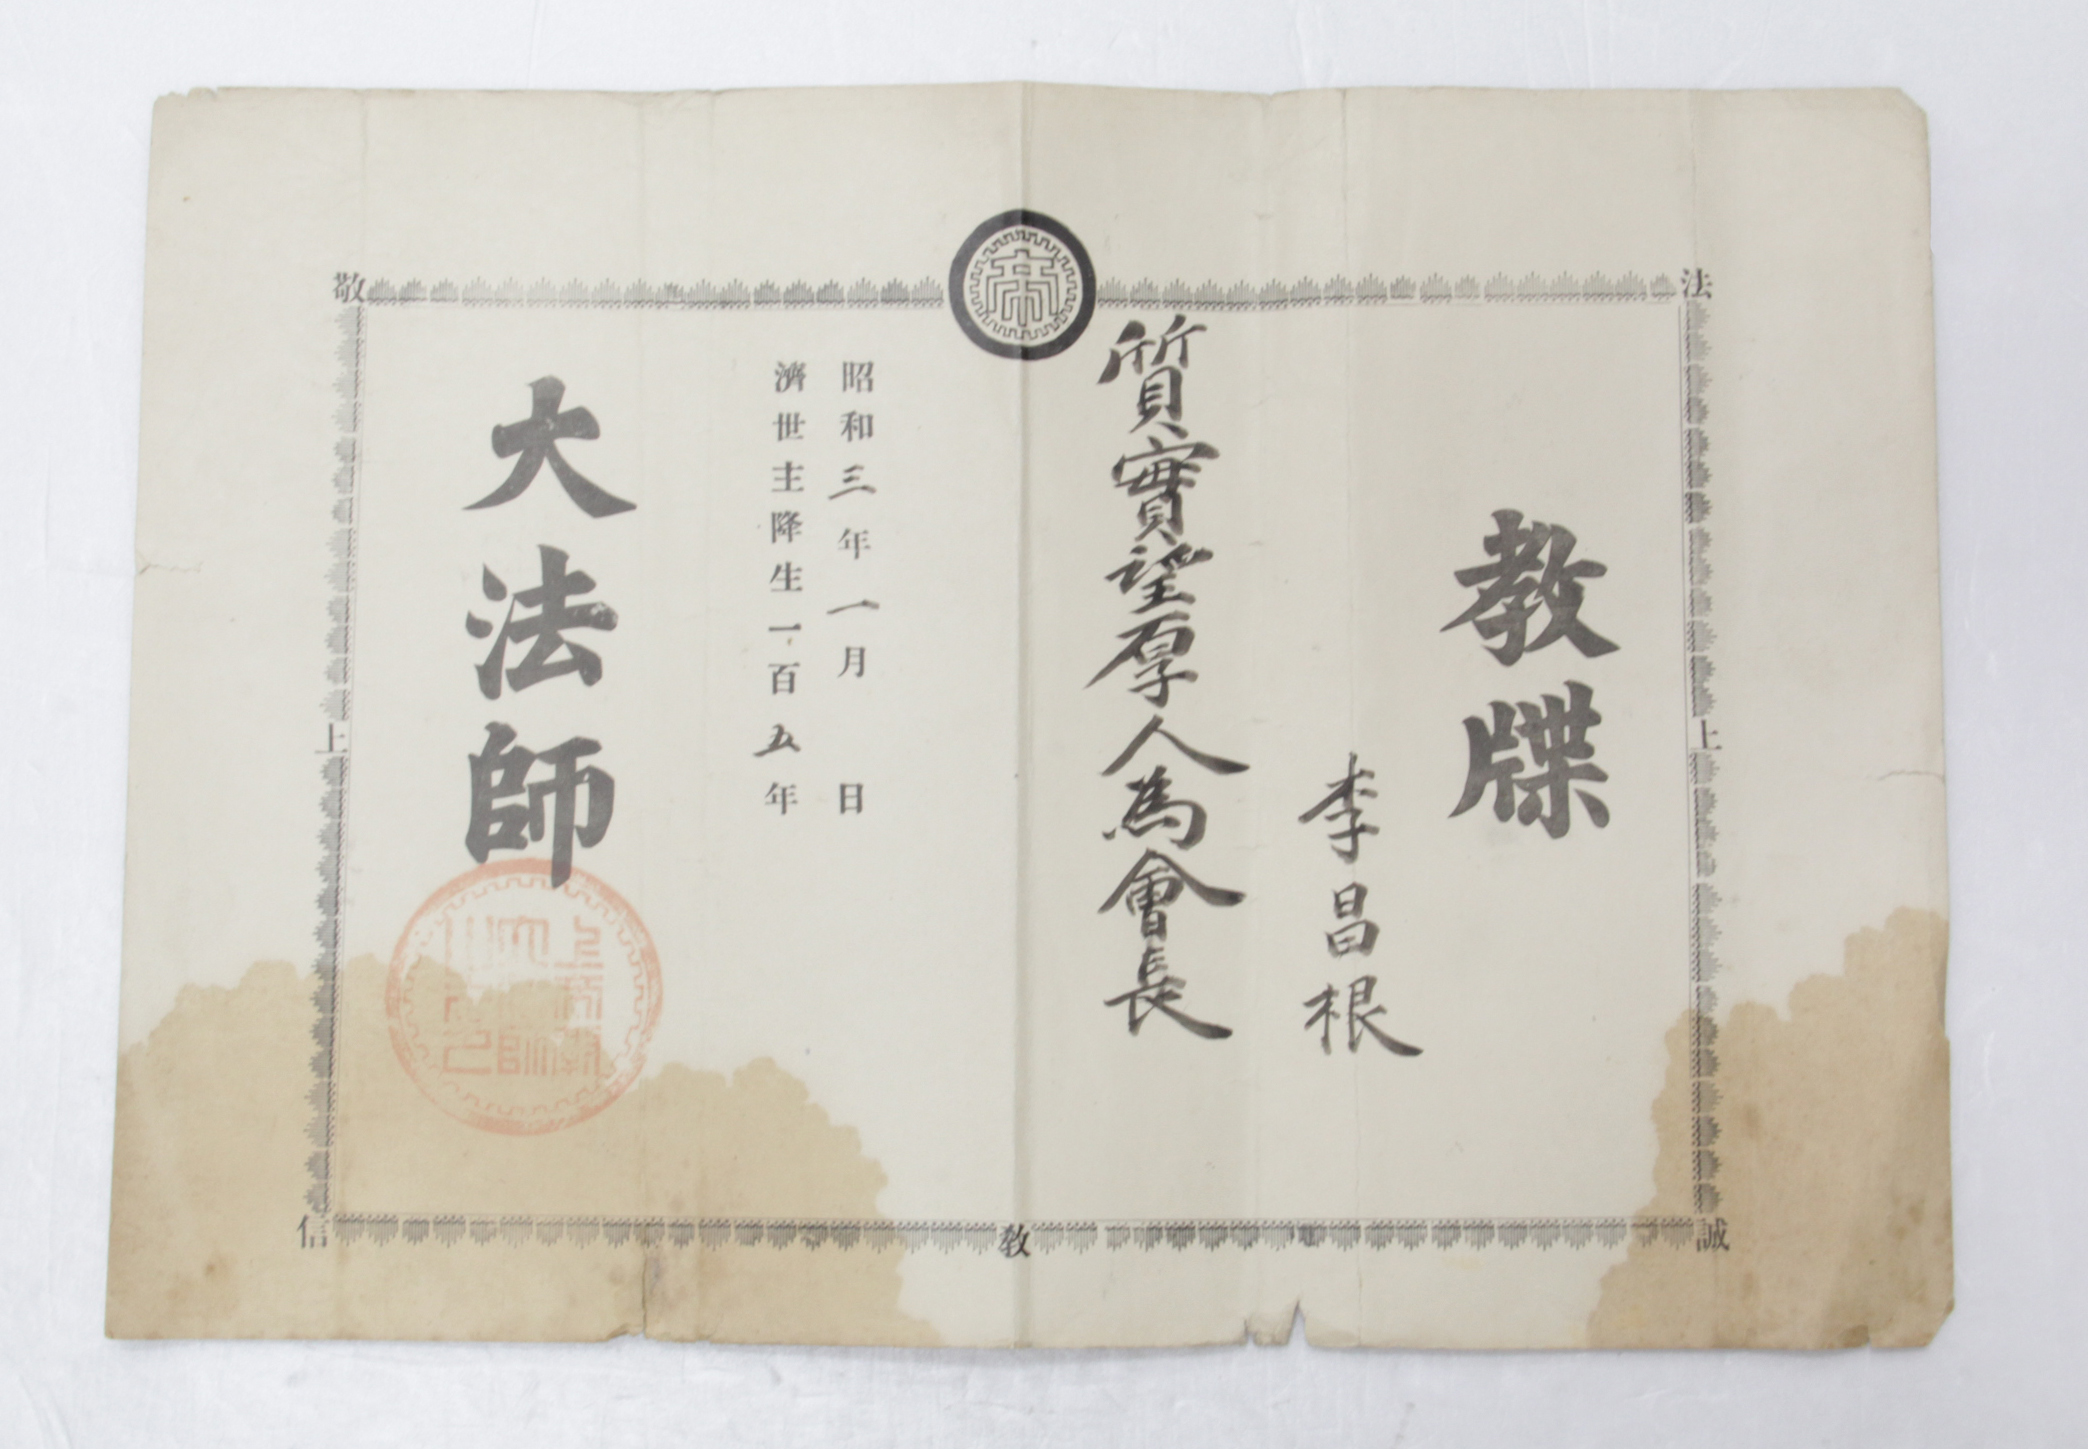 帝
教牒
李昌根
質實望厚人為會長
昭和三年一月 日
濟世主降生一百五年
大法師
法
上
誠
教
敬
上
信